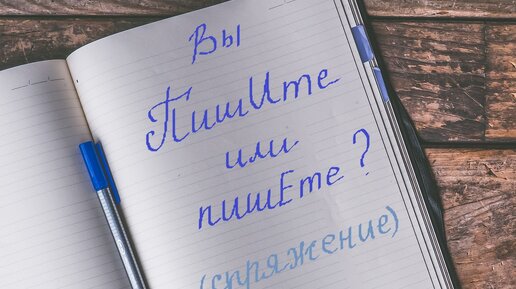 Вы
ПишИте
или
пишЕте?
(спряжение)